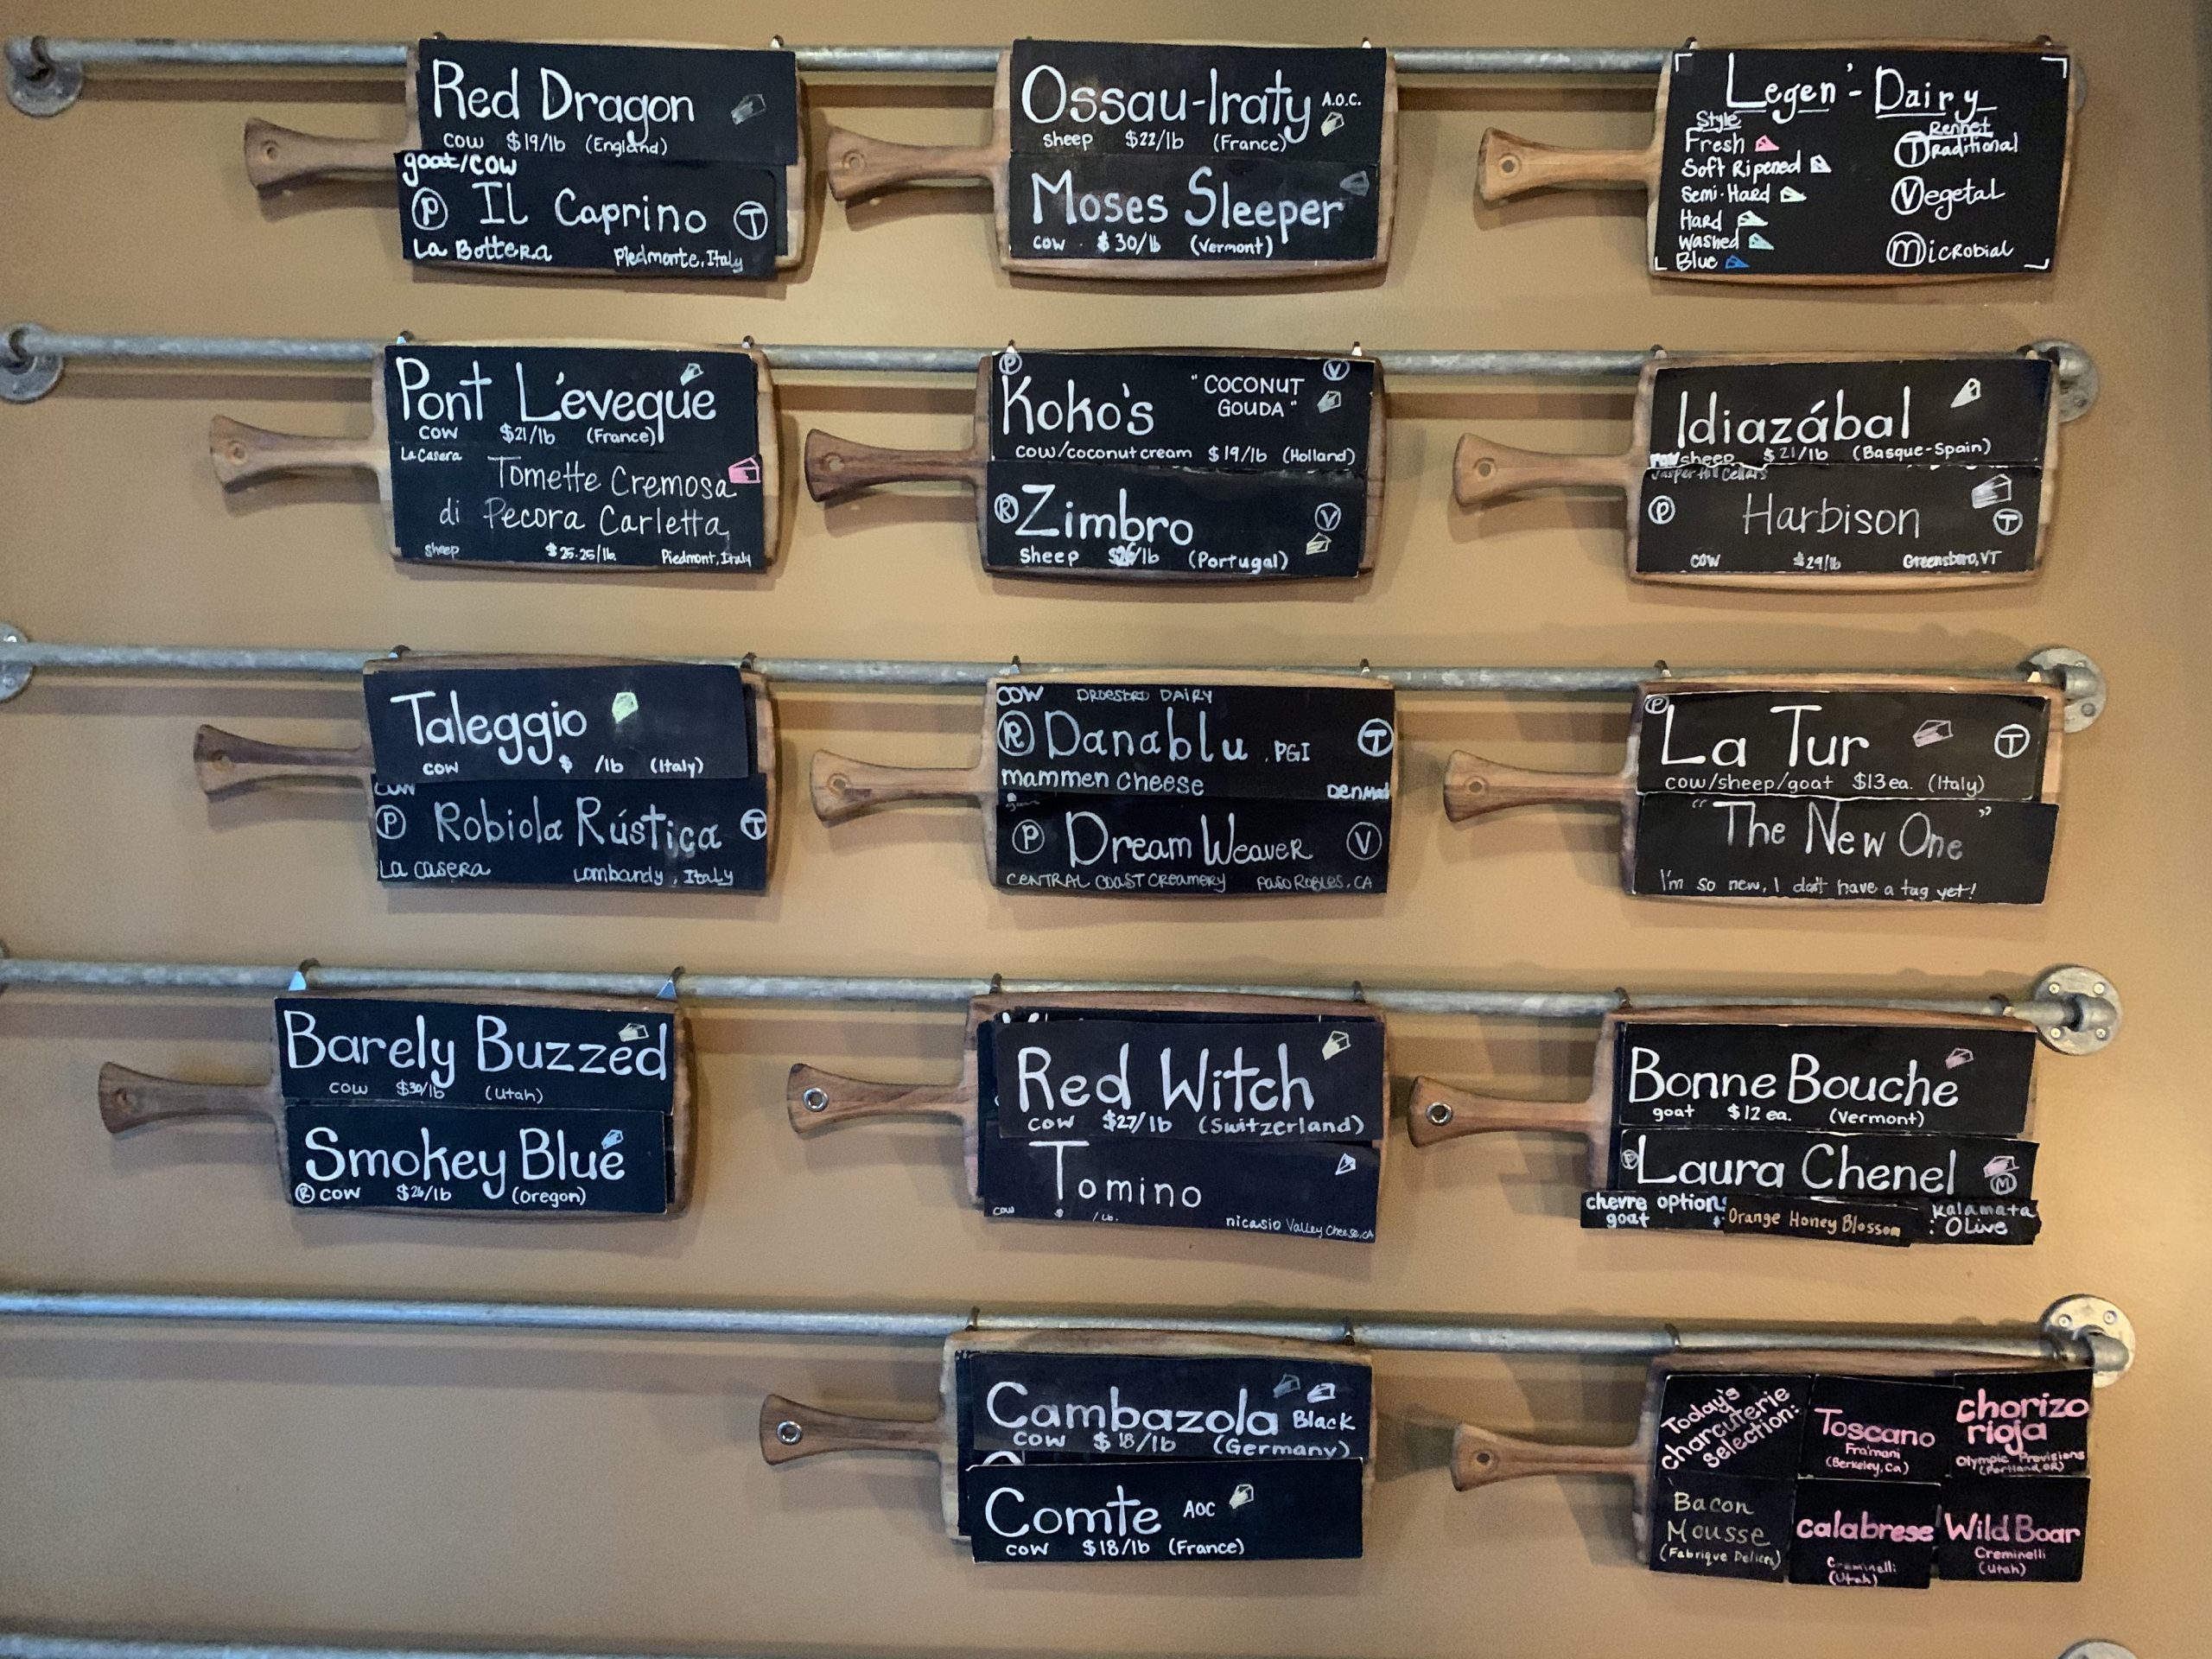 Red Dragon
cow $19/lb (England)
goat/cow
P Il Caprino T
La Bottera Piedmonte, Italy
Ossau-Iraty A.O.C.
sheep $22/lb (France)
Moses Sleeper
cow $30/lb (Vermont)
Legen'-Dairy
Style
Fresh
Soft Ripened
Semi-Hard
Hard
Washed
Blue
Rennet
Traditional
Vegetal
Microbial
Pont L'éveque
cow $21/lb (France)
La Casera
Tomette Cremosa
di Pecora Carletta
sheep $25.25/lb Piedmont, Italy
P V
Koko's "COCONUT
GOUDA"
cow/coconut cream $19/lb (Holland)
R Zimbro V
sheep /lb (Portugal)
Idiazábal
raw sheep $21/lb (Basque-Spain)
Jasper Hill Cellars
P Harbison T
cow $29/lb Greensboro, VT
Taleggio
cow $ /lb (Italy)
cow
P Robiola Rústica T
La Casera Lombardy, Italy
cow DAIRY
R Danablu PGI T
mammen cheese Denmark
P Dream Weaver V
CENTRAL COAST CREAMERY PASO ROBLES, CA
P
La Tur T
cow/sheep/goat $13 ea. (Italy)
"The New One"
I'm so new, I don't have a tag yet!
Barely Buzzed
cow $30/lb (Utah)
Smokey Blue
R cow $26/lb (Oregon)
Red Witch
cow $27/lb (Switzerland)
Tomino
cow $ /lb. nicasio Valley Cheese, CA
Bonne Bouche
goat $12 ea. (Vermont)
P Laura Chenel M
chevre options
goat $
Orange Honey Blossom
Kalamata
: Olive
Cambazola Black
cow $18/lb (Germany)
Comte AOC
cow $18/lb (France)
Today's
charcuterie
selection:
Toscano
Fra'mani
(Berkeley, Ca)
chorizo
rioja
Olympic Provisions
(Portland, OR)
Bacon
Mousse
(Fabrique Delices)
calabrese
Creminelli
(Utah)
Wild Boar
Creminelli
(Utah)